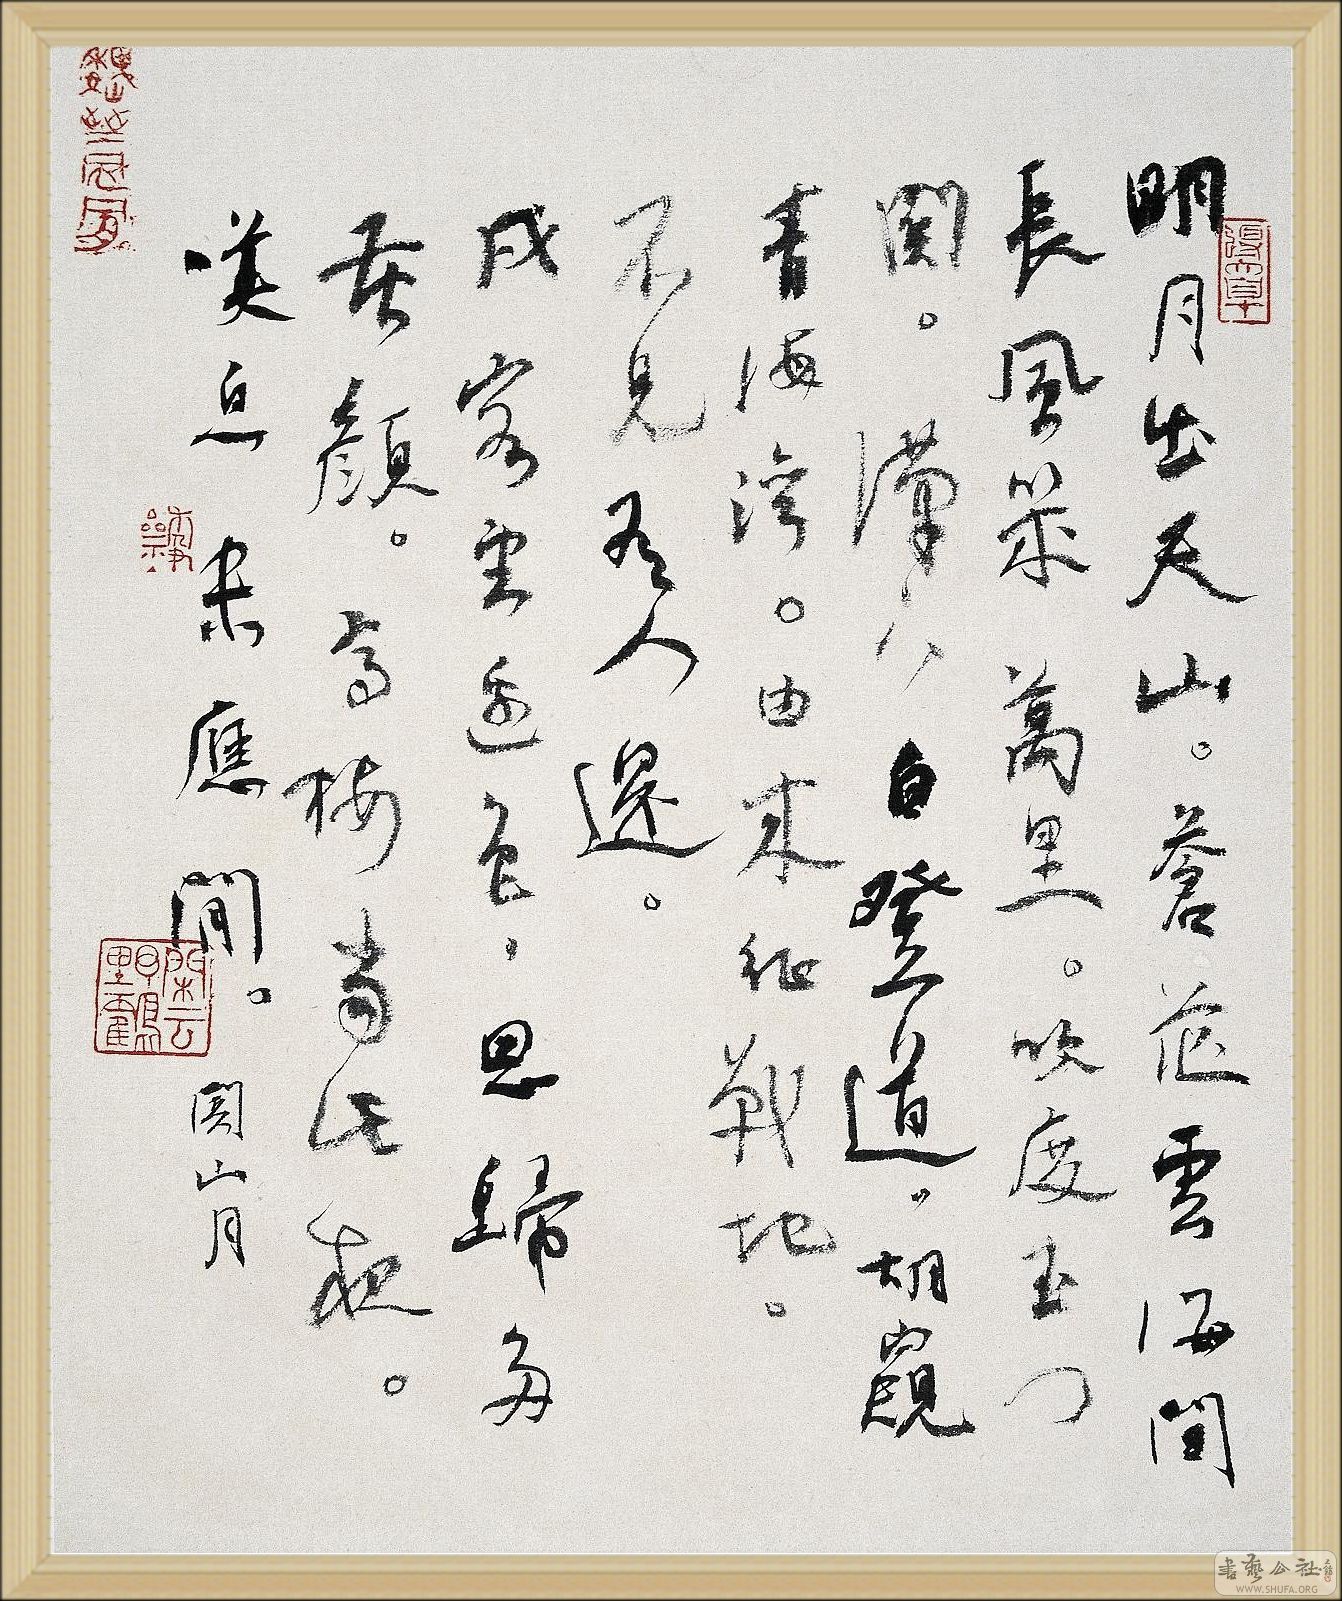 明月出天山。蒼茫雲海間
長風幾萬里。吹度玉門
関。漢下白登道,胡窺
青海灣。由来征戰地。
不見有人還。
戍客望邊色,思歸多
苦顔。高樓當此夜。
嘆息未應閒。関山月
書藝公社
WWW.SHUFA.ORG